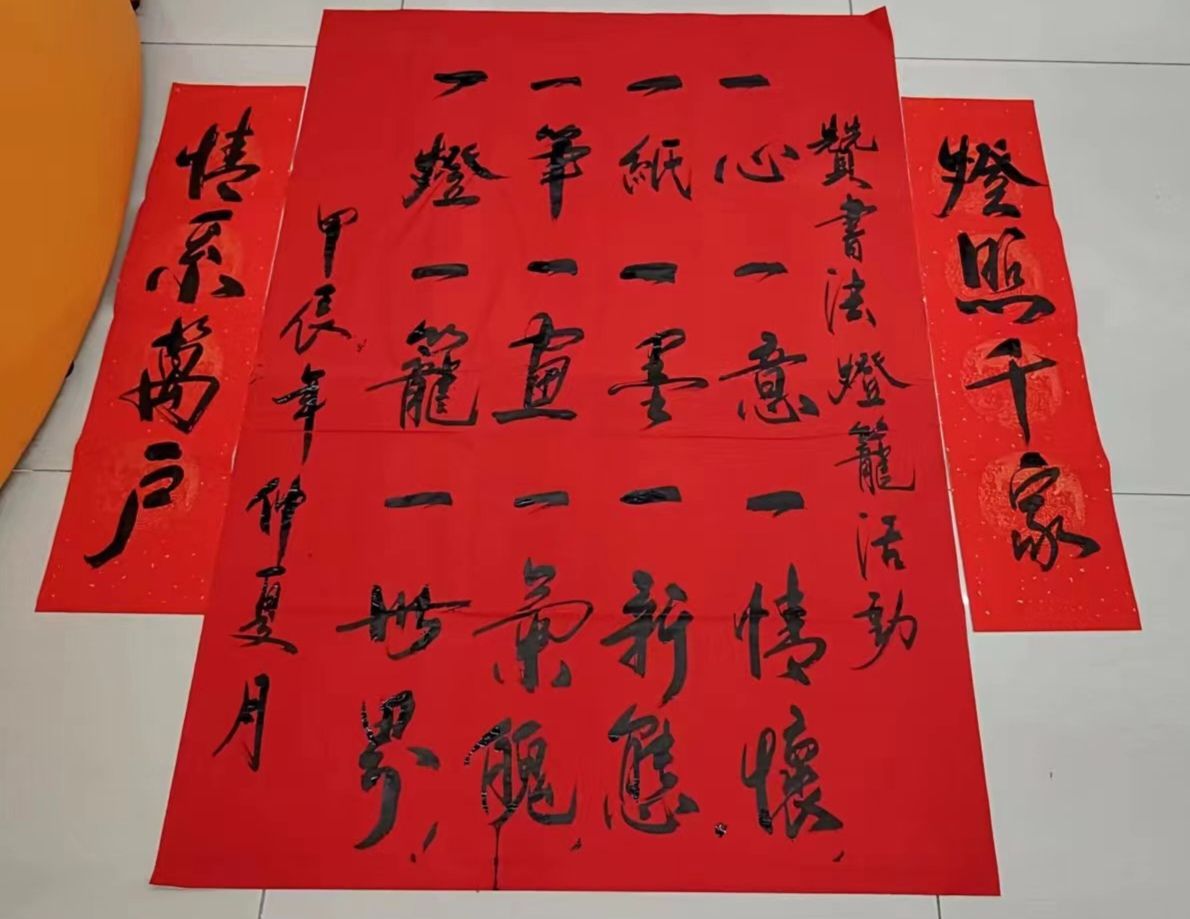 燈照千家
贊書法燈籠活動
一心一意一情懷
一紙一墨一新態
一筆一畫一氣魄
一燈一籠一世界
甲辰年仲夏月
情系萬戶